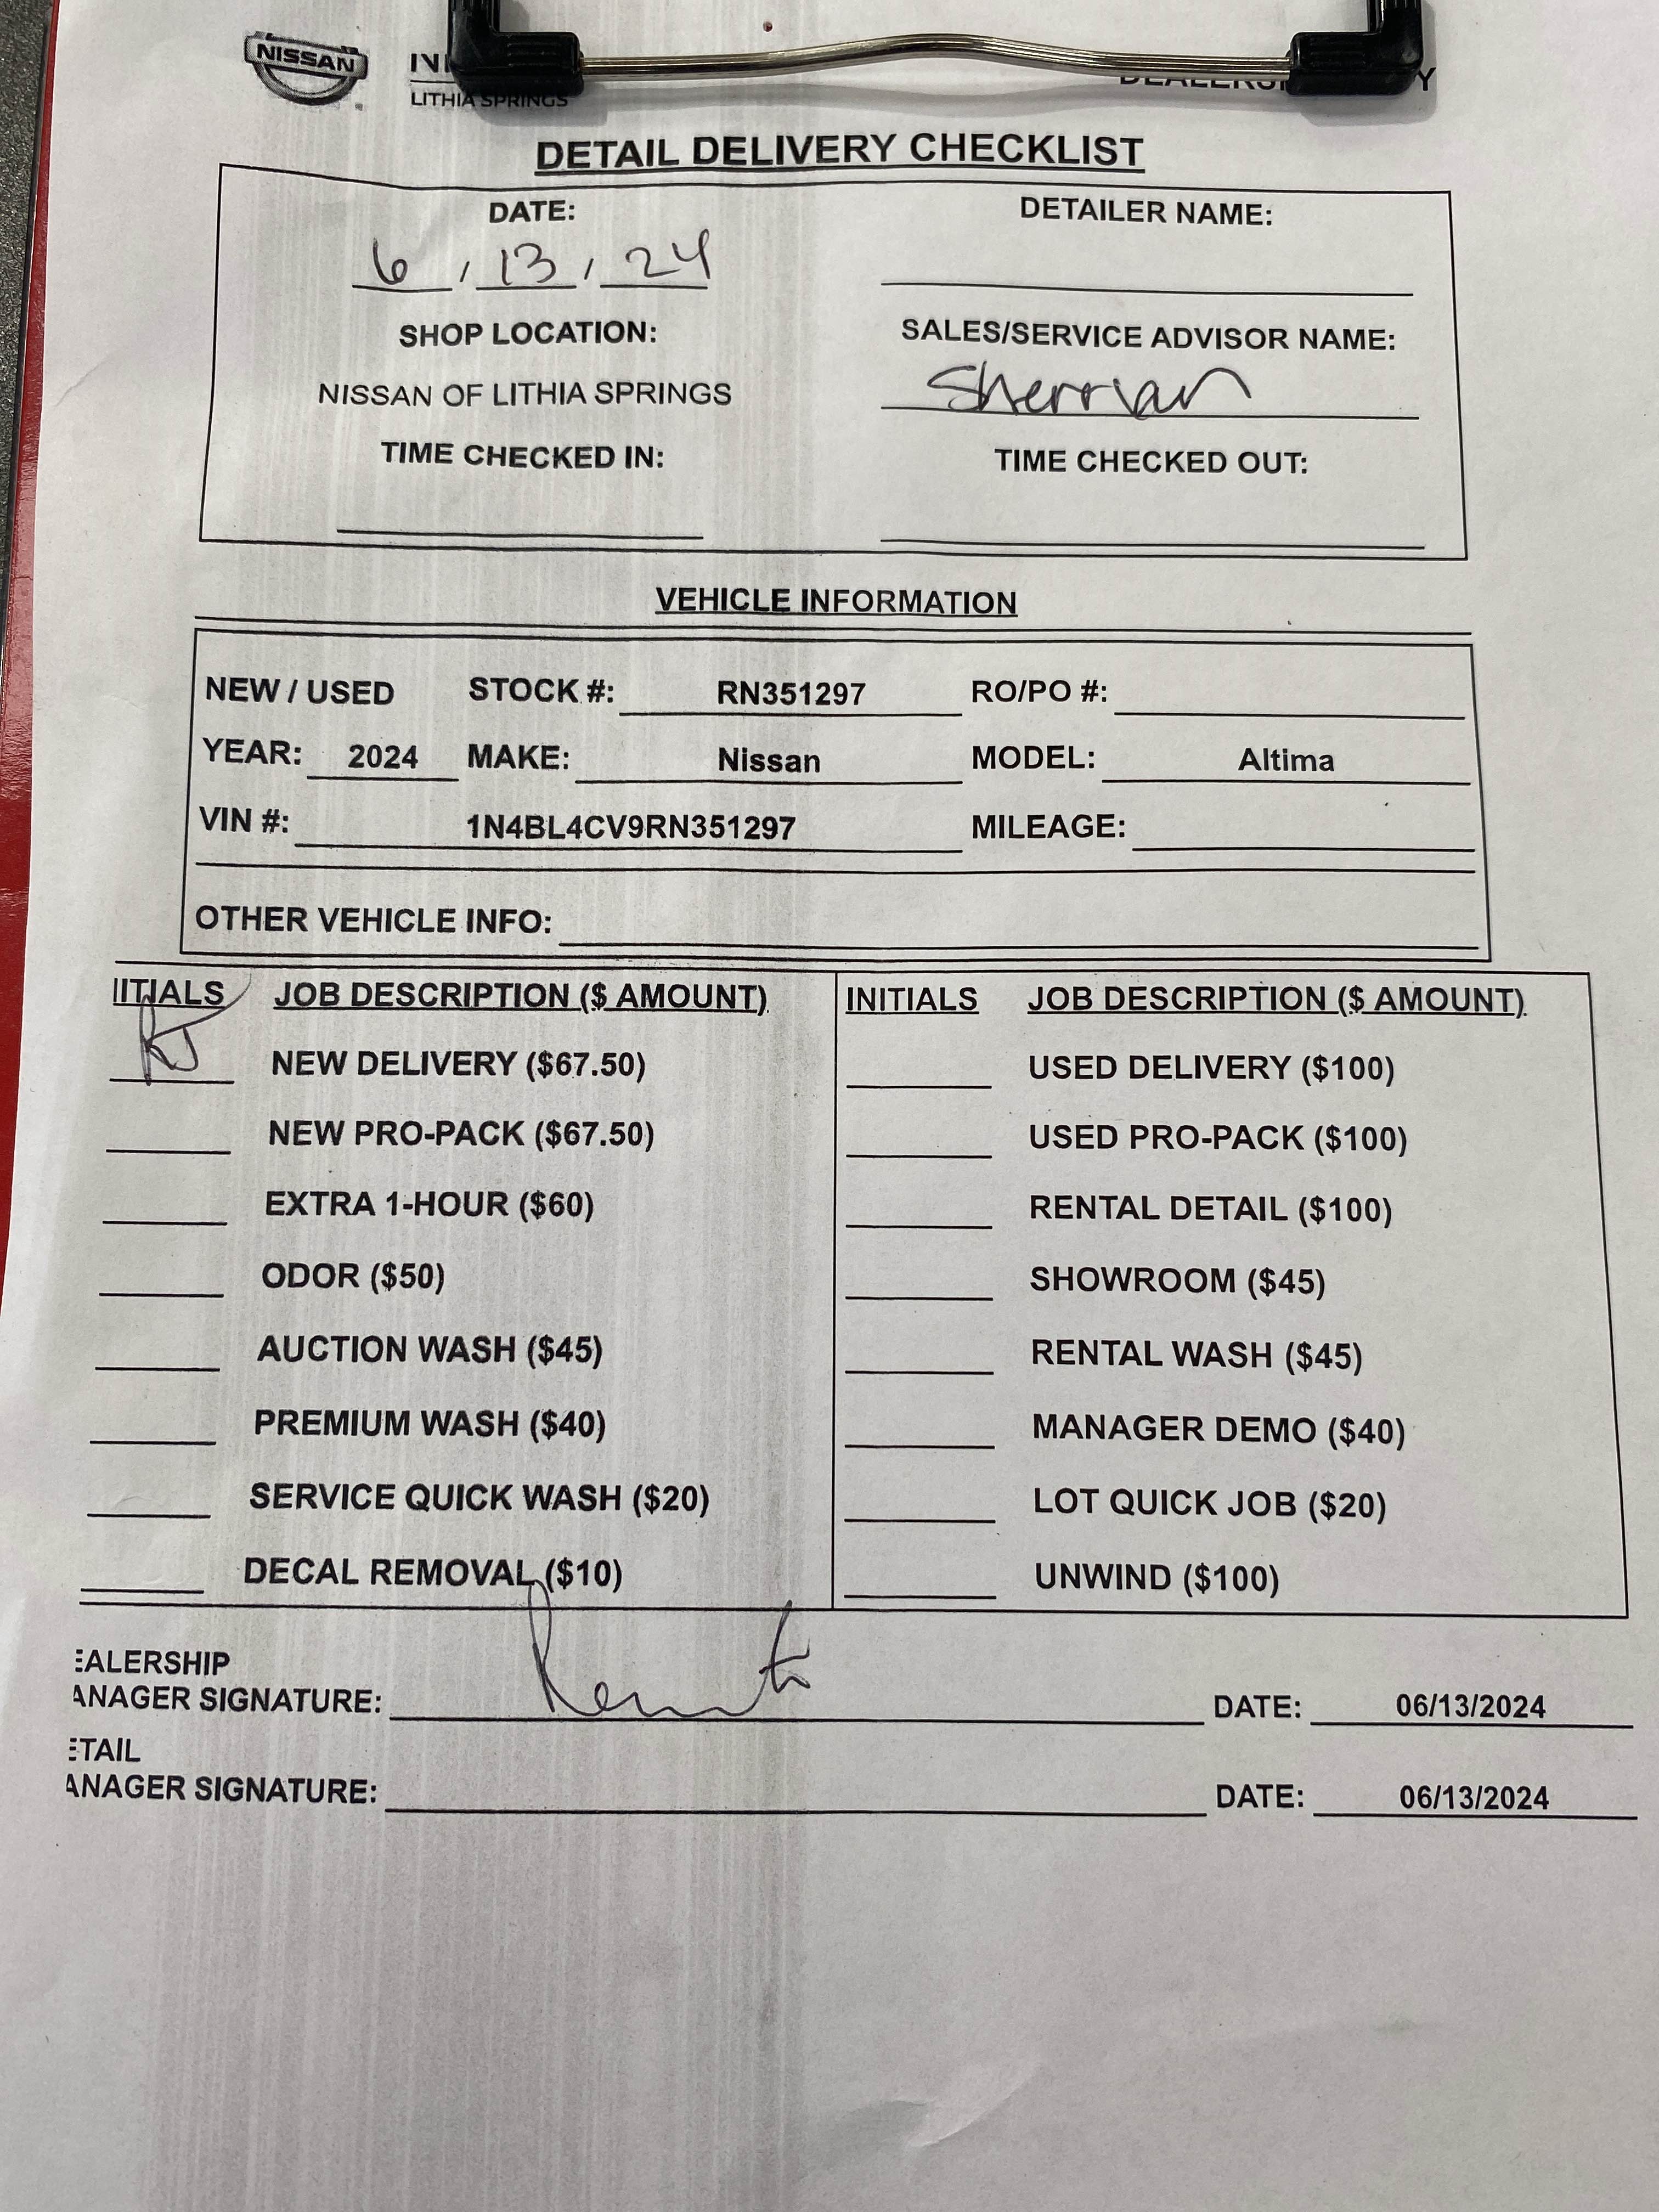 NISSAN
LITHIA SPRINGS
DETAIL DELIVERY CHECKLIST
DATE: DETAILER NAME:
6 / 13 / 24
SHOP LOCATION: SALES/SERVICE ADVISOR NAME:
NISSAN OF LITHIA SPRINGS Sherrian
TIME CHECKED IN: TIME CHECKED OUT:
VEHICLE INFORMATION
NEW / USED STOCK #: RN351297 RO/PO #:
YEAR: 2024 MAKE: Nissan MODEL: Altima
VIN #: 1N4BL4CV9RN351297 MILEAGE:
OTHER VEHICLE INFO:
IITIALS JOB DESCRIPTION ($ AMOUNT) INITIALS JOB DESCRIPTION ($ AMOUNT)
NEW DELIVERY ($67.50) USED DELIVERY ($100)
NEW PRO-PACK ($67.50) USED PRO-PACK ($100)
EXTRA 1-HOUR ($60) RENTAL DETAIL ($100)
ODOR ($50) SHOWROOM ($45)
AUCTION WASH ($45) RENTAL WASH ($45)
PREMIUM WASH ($40) MANAGER DEMO ($40)
SERVICE QUICK WASH ($20) LOT QUICK JOB ($20)
DECAL REMOVAL ($10) UNWIND ($100)
EALERSHIP
ANAGER SIGNATURE: DATE: 06/13/2024
ETAIL
ANAGER SIGNATURE: DATE: 06/13/2024